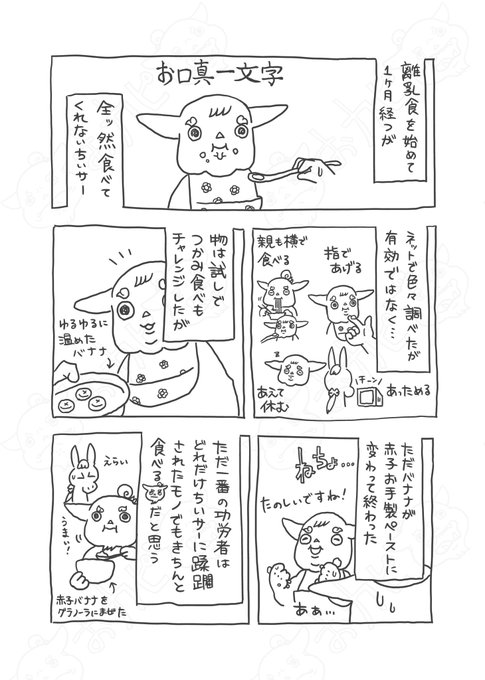 離乳食を始めて
1ヶ月経つが
お口真一文字
全ッ然食べて
くれないちぃサー
ネットで色々調べたが
有効ではなく…
指で
あげる
親も横で
食べる
あえて
休む
チーン!
あっためる
物は試しで
つかみ食べも
チャレンジしたが
ゆるゆるに
温めた
バナナ
ただバナナが
赤子お手製ペーストに
変わって終わった
ねちょ…
たのしいですね!
あぁ…
ただ一番の功労者は
どれだけちぃサーに蹂躙
されたモノでもきちんと
食べる
だと思う
えらい
うまい!
赤子バナナを
グラノーラにまぜた